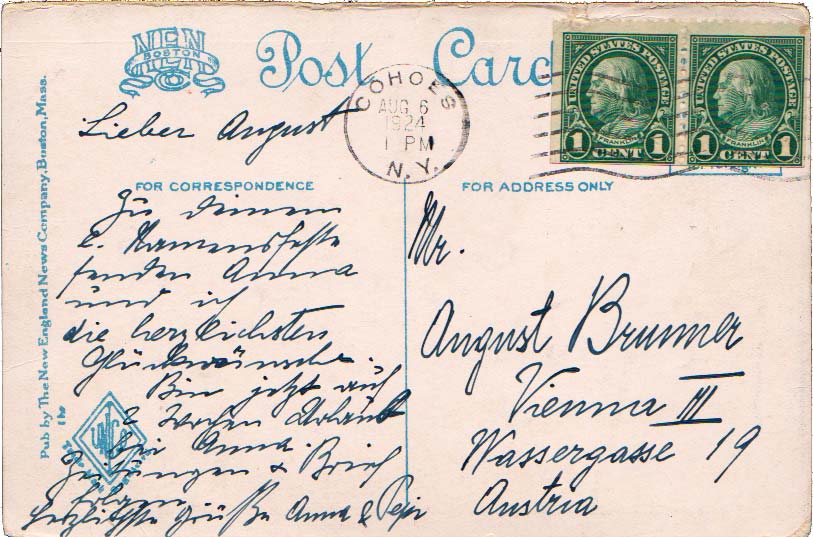 NEN
BOSTON
Post Card
UNITED STATES POSTAGE
FRANKLIN
1 CENT 1
UNITED STATES POSTAGE
FRANKLIN
1 CENT 1
COHOES
AUG 6
1924
1 PM
N.Y.
Pub by The New England News Company, Boston, Mass.
FOR CORRESPONDENCE
FOR ADDRESS ONLY
Lieber August
Zu deinem
l. Namensfeste
senden Anna
und ich
die herzlichsten
Glückwünsche.
Bin jetzt auf
2 Wochen Urlaub
bei Anna.
Zeitungen & Brief
folgen
herzlichste Grüße Anna & Pepi
Mr.
August Brunner
Vienna III
Wassergasse 19
Austria